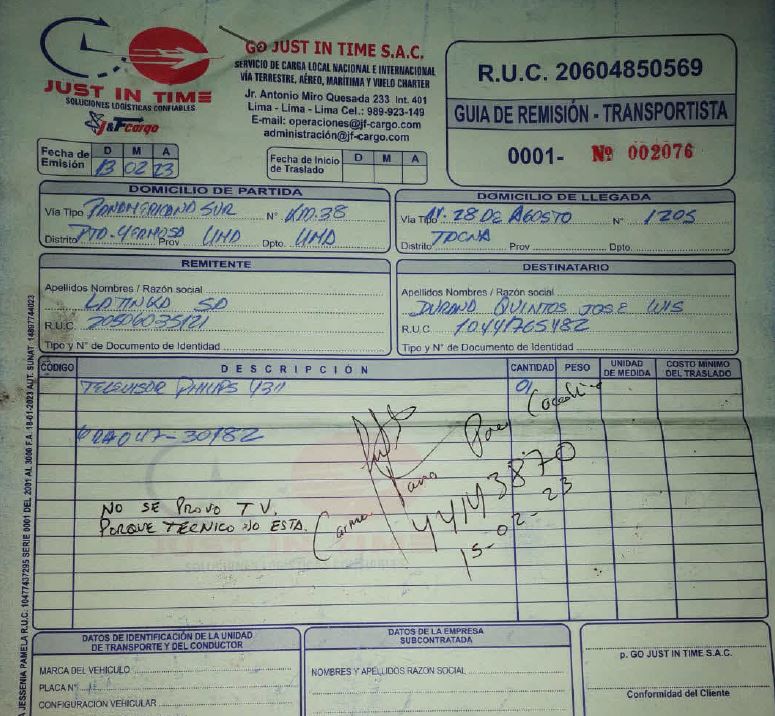 JUST IN TIME
SOLUCIONES LOGÍSTICAS CONFIABLES
J&F cargo
GO JUST IN TIME S.A.C.
SERVICIO DE CARGA LOCAL NACIONAL E INTERNACIONAL
VÍA TERRESTRE, AÉREO, MARÍTIMA Y VUELO CHARTER
Jr. Antonio Miro Quesada 233 Int. 401
Lima - Lima - Lima Cel.: 989-923-149
E-mail: operaciones@jf-cargo.com
administración@jf-cargo.com
R.U.C. 20604850569
GUIA DE REMISIÓN - TRANSPORTISTA
0001- Nº 002076
Fecha de Emisión D M A
13 02 23
Fecha de Inicio de Traslado D M A
DOMICILIO DE PARTIDA
Vía Tipo PANAMERICANA SUR Nº KM.38
Distrito PTO. HERMOSA Prov LIMA Dpto. LIMA
DOMICILIO DE LLEGADA
Vía Tipo 28 DE AGOSTO Nº 1205
Distrito TACNA Prov Dpto.
REMITENTE
Apellidos Nombres / Razón social
LATINKA SA
R.U.C. 20506035121
Tipo y N° de Documento de Identidad
DESTINATARIO
Apellidos Nombres / Razón social
DURAND QUINTOS JOSE LUIS
R.U.C. 10441765482
Tipo y N° de Documento de Identidad
CÓDIGO DESCRIPCIÓN CANTIDAD PESO UNIDAD DE MEDIDA COSTO MÍNIMO DEL TRASLADO
TELEVISOR PHILIPS 43" 01
047-30182
NO SE PROVO TV.
PORQUE TECNICO NO ESTA.
44143870
15-02-23
JUST IN TIME
JESSENIA PAMELA R.U.C. 10477437295 SERIE 0001 DEL 2001 AL 3000 F.A. 18-01-2023 AUT. SUNAT 14897744023
DATOS DE IDENTIFICACIÓN DE LA UNIDAD
DE TRANSPORTE Y DEL CONDUCTOR
MARCA DEL VEHICULO
PLACA N°
CONFIGURACION VEHICULAR
DATOS DE LA EMPRESA
SUBCONTRATADA
NOMBRES Y APELLIDOS RAZON SOCIAL
p. GO JUST IN TIME S.A.C.
Conformidad del Cliente